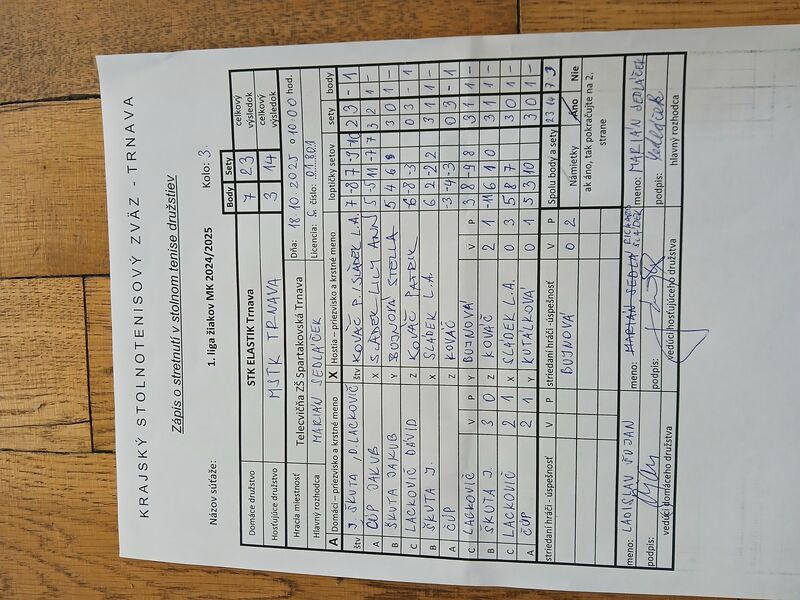 KRAJSKÝ STOLNOTENISOVÝ ZVÄZ - TRNAVA
Zápis o stretnutí v stolnom tenise družstiev
Názov súťaže: 1. liga žiakov MK 2024/2025 Kolo: 3.
Body Sety
Domáce družstvo STK ELASTIK Trnava 7 23 celkový výsledok
Hosťujúce družstvo MSTK TRNAVA 3 14 celkový výsledok
Hracia miestnosť Telecvičňa ZŠ Spartakovská Trnava Dňa: 18.10.2025 o 10:00 hod.
Hlavný rozhodca MARIÁN SEDLÁČEK Licencia: C číslo: 01801
A Domáci – priezvisko a krstné meno X Hostia – priezvisko a krstné meno loptičky setov sety body
štv J. ŠKUTA, D. LACKOVIČ štv KOVÁČ P./SLÁDEK L.A. 7 -8 7 -9 -10 2 3 - 1
A ČÚP JAKUB X SLÁDEK LILY ANN 5 -5 11 -7 7 3 2 1 -
B ŠKUTA JAKUB Y BUJNOVÁ STELLA 5 4 6 3 0 1 -
C LACKOVIČ DAVID Z KOVÁČ PATRIK -6 -8 -3 0 3 - 1
B ŠKUTA J. X SLÁDEK L.A. 6 2 -2 2 3 1 1 -
A ČÚP Z KOVÁČ -3 -4 -3 0 3 - 1
C LACKOVIČ V P Y BUJNOVÁ V P 3 8 -9 8 3 1 1 -
B ŠKUTA J. 3 0 Z KOVÁČ 2 1 -11 6 10 8 3 1 1 -
C LACKOVIČ 2 1 X SLÁDEK L.A. 0 3 5 8 7 3 0 1 -
A ČÚP 2 1 Y KUTÁLKOVÁ 0 1 5 3 10 3 0 1 -
striedaní hráči - úspešnosť V P striedaní hráči - úspešnosť V P Spolu body a sety 23 14 7 3
BUJNOVÁ 0 2 Námietky Áno Nie
ak áno, tak pokračujte na 2. strane
meno: LADISLAV ŠUJAN meno: RICHARD SLÁDEK meno: MARIÁN SEDLÁČEK
podpis: podpis: podpis: Sedláček
vedúci domáceho družstva vedúci hosťujúceho družstva hlavný rozhodca